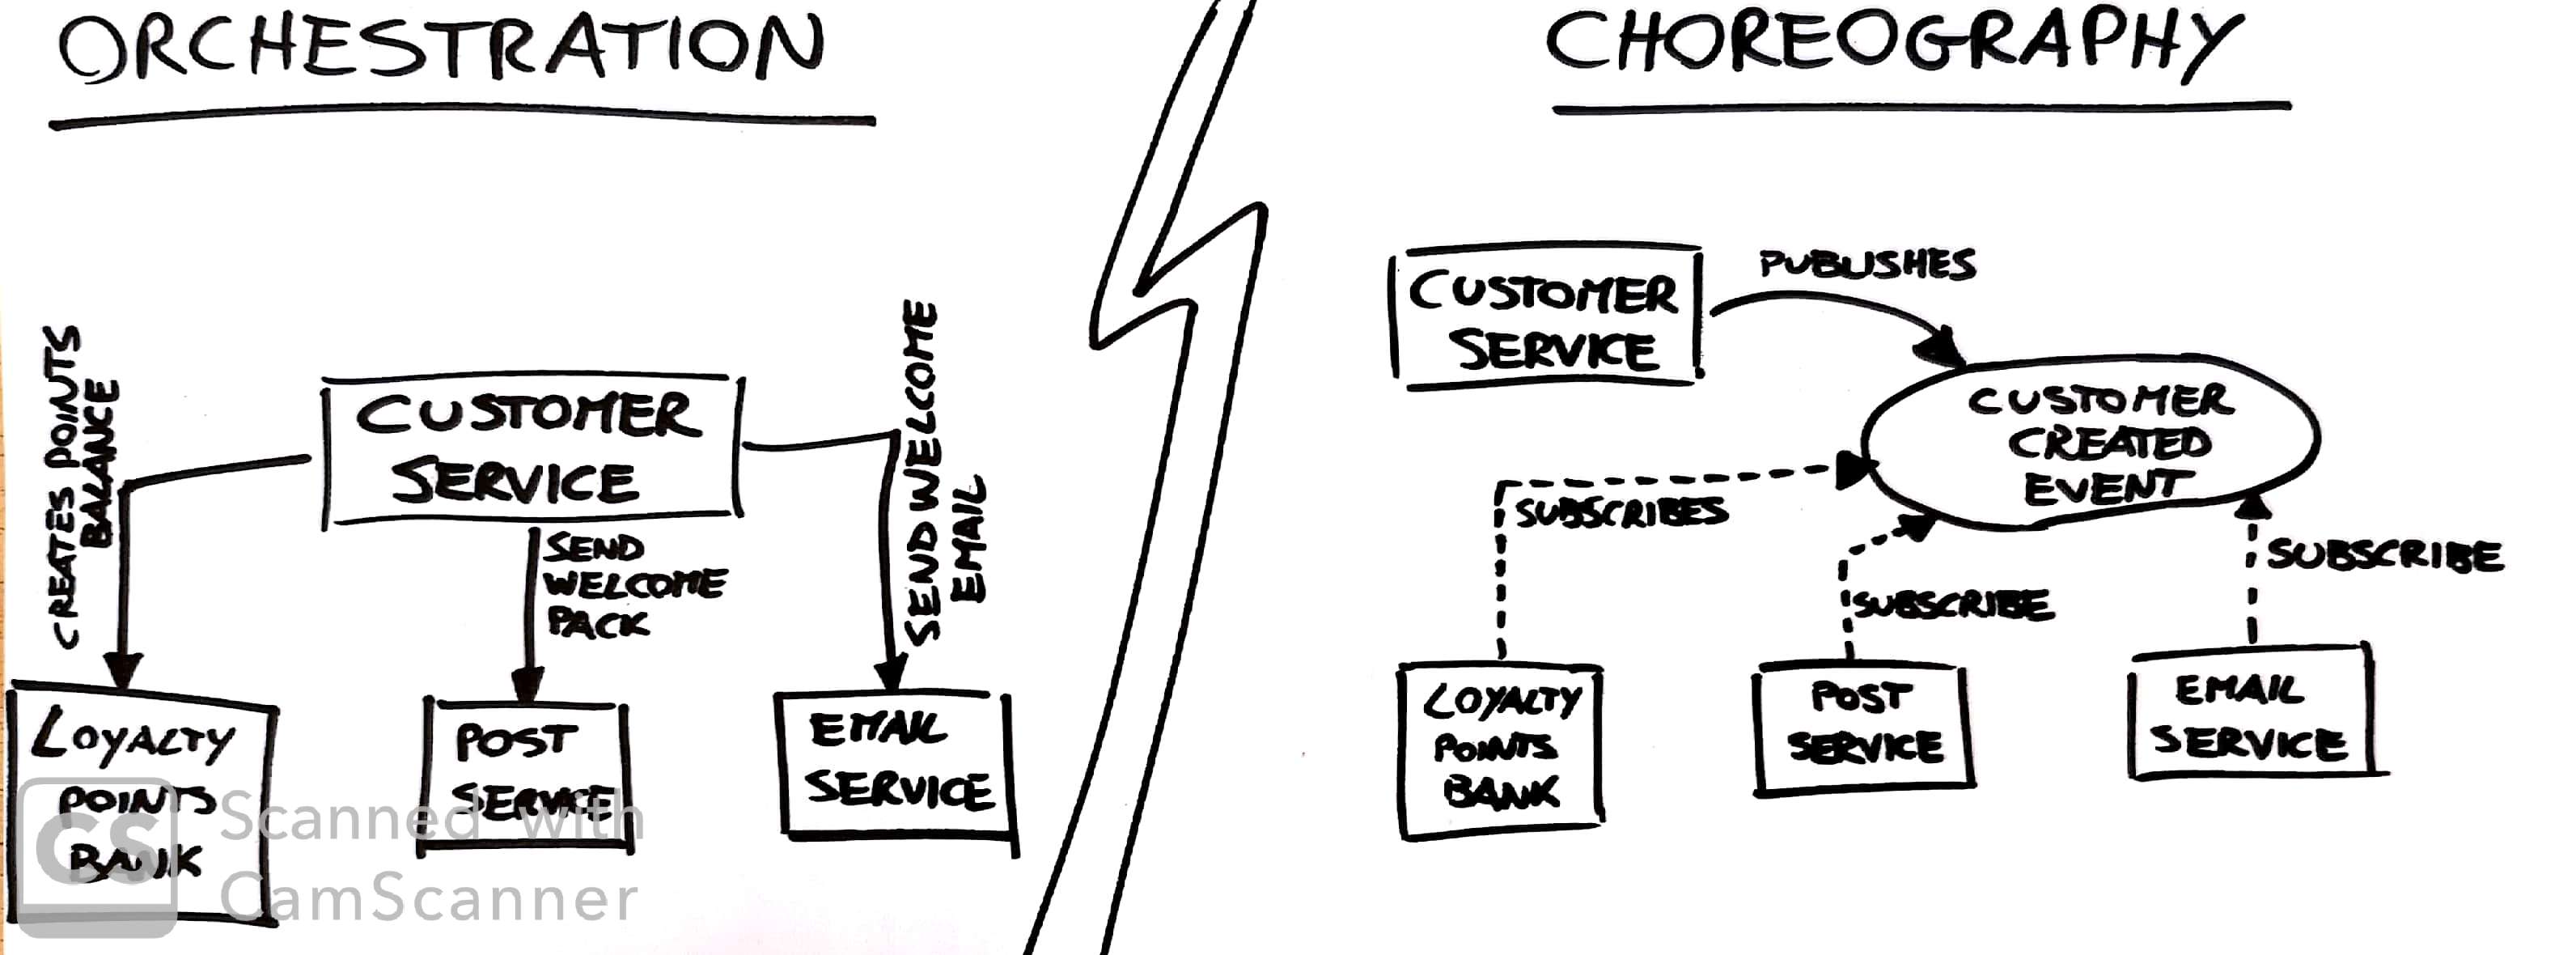 ORCHESTRATION
CREATES POINTS
BALANCE
CUSTOMER
SERVICE
SEND
WELCOME
PACK
SEND WELCOME
EMAIL
LOYALTY
POINTS
BANK
POST
SERVICE
EMAIL
SERVICE
CS
Scanned with
CamScanner
CHOREOGRAPHY
CUSTOMER
SERVICE
PUBLISHES
CUSTOMER
CREATED
EVENT
SUBSCRIBES
SUBSCRIBE
SUBSCRIBE
LOYALTY
POINTS
BANK
POST
SERVICE
EMAIL
SERVICE